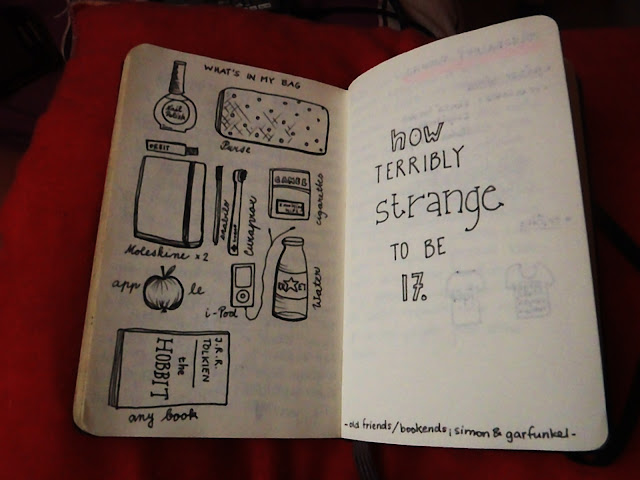 WHAT'S IN MY BAG
Nail
Polish
Purse
ORBIT
Moleskine x 2
stabilo
luxaprior
GAMES
cigarettes
app le
i-Pod
Water
J.R.R.
TOLKIEN
the
HOBBIT
any book
how
TERRIBLY
strange
TO BE
17.
-old friends/bookends; simon & garfunkel-